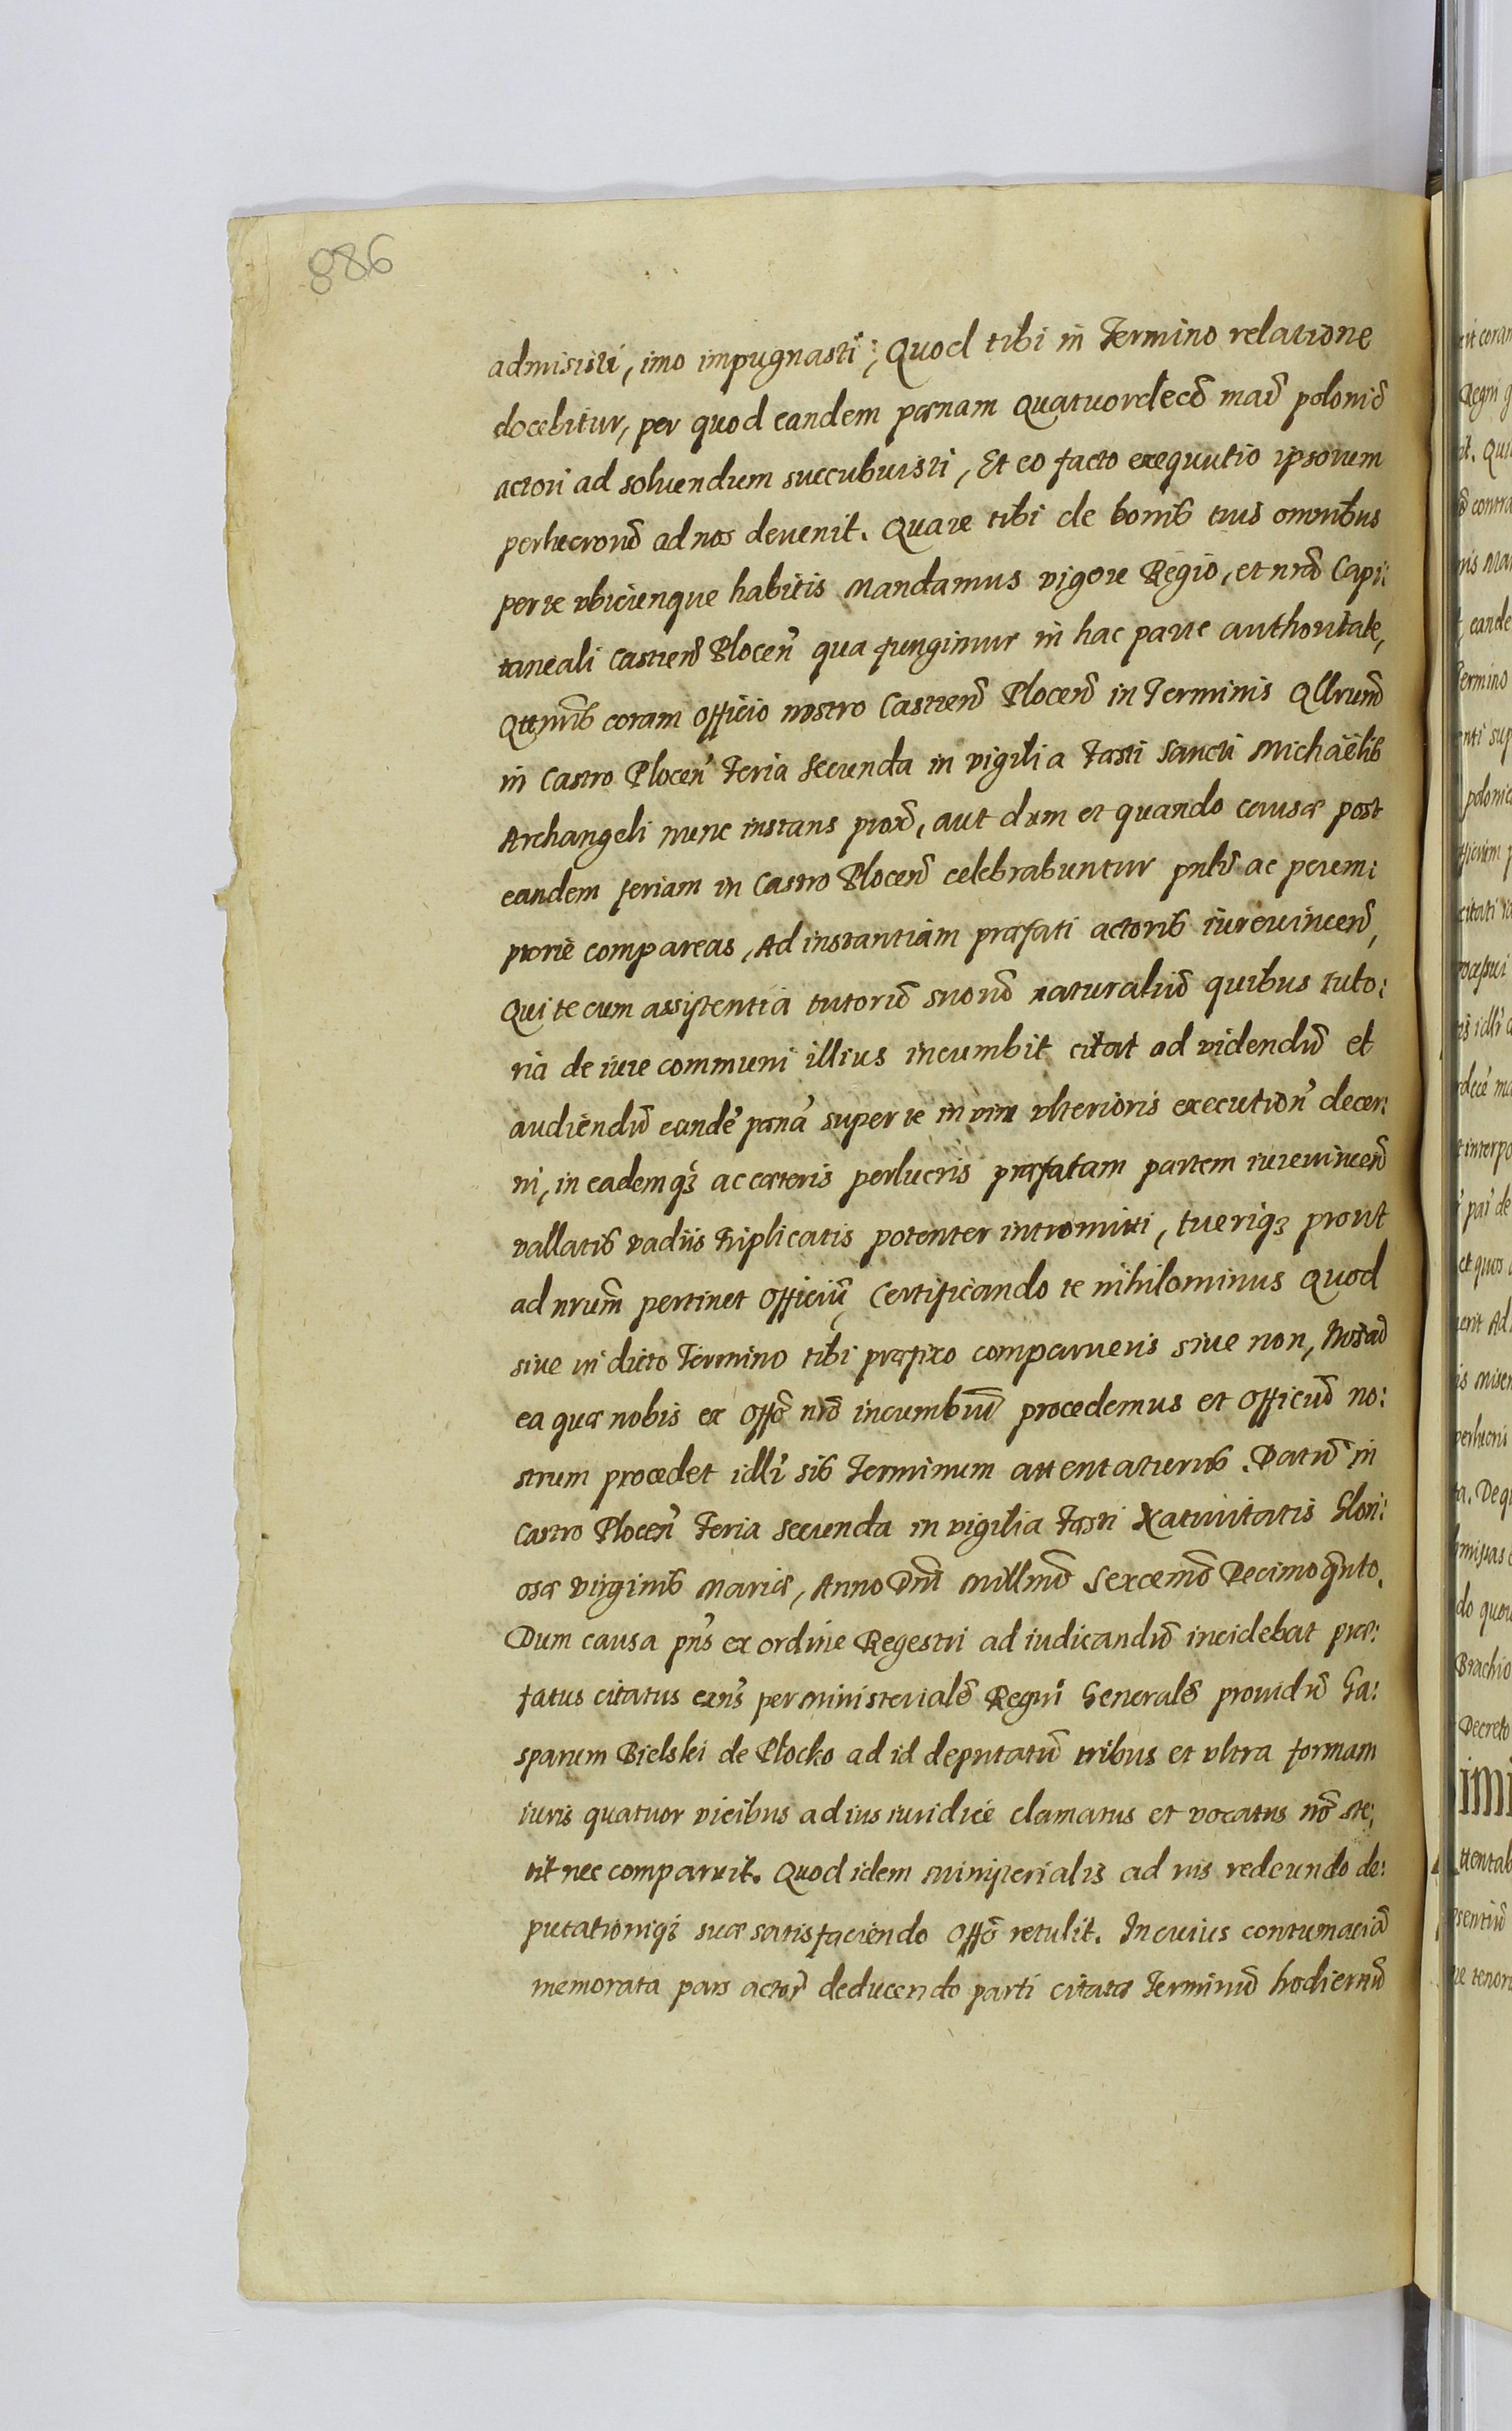 886
admisisti, imo impugnasti; Quod tibi in Termino relatione
docebitur, per quod eandem pænam quatuordecẽ mar̃ poloniĉ
actori ad soluendum succubuisti, Et eo facto exequutio ipsorum
perlucrorũ ad nos devenit. Quare tibi de bonis tuis omnibus
per te vbicunque habitis Mandamus vigore Regio, et nr̃o Capi:
taneali Castren̄ Plocen̄ qua fungimur in hac parte authoritate,
Qtt̃nus coram Officio nostro Castren̄ Plocen̄ in Terminis Qllrum̃
in Castro Plocen̄ Feria Secunda in vigilia Fæsti Sancti Michäelis
Archangeli nunc instans prox̃, aut dum et quando causæ post
eandem feriam in Castro Plocen̄ celebrabuntur pnlr̃ ac perem:
ptoriè compareas, Ad instantiam præfati actoris iurevincen̄,
Qui te cum assistentia tutorũ suorũ naturaliũ quibus tuto:
ria de iure communi illius incumbit citat ad videndũ et
audiendũ eandẽ pænã super te in vim vlterioris execution̄ decer:
ni, in eademq3 ac cæteris perlucris præfatam partem iurevincen̄
vallatis vadiis triplicatis potenter intromitti, tueriq3 prout
ad nrum̃ pertinet Officiũ, Certificando te nihilominus Quod
siue in dicto Termino tibi præfixo comparueris siue non, Nos ad
ea quæ nobis ex Offõ nr̃o incumbũt procedemus et Officiũ no:
strum procedet idlr̃ sis Terminum attentaturus. Datũ in
Castro Plocen̄ Feria secunda in vigilia Fæsti Natiuitatis Glori:
osæ virginis Mariæ, Anno Dnĩ Millmõ Sexcenmõ Decimoq̃nto.
Dum causa pn̄s ex ordine Regestri ad iudicandũ incidebat præ:
fatus citatus exn̄s per ministerialẽ Regni Generalẽ prouidũ Ga:
sparum Bielski de Płocko ad id deputatũ tribus et vltra formam
iuris quatuor vicibus ad ius iuridicè clamatus et vocatus nõ ste:
tit nec comparuit. Quod idem ministerialis ad nis redeundo de:
putationiq3 suæ satisfaciendo Offõ retulit. In cuius contumaciã
memorata pars actor̃ deducendo parti citatæ Terminũ hodiernũ